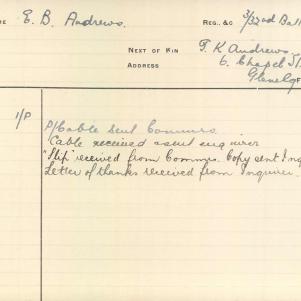 E. B. Andrews. REG. &c 3/32nd Batt
NEXT OF KIN T. K Andrews
ADDRESS 6. Chapel St
Glenelg
1/P P/Cable sent Commrs.
Cable received & sent enquirer
"Slip" received from Commrs. Copy sent Inq
Letter of thanks received from Inquirer.